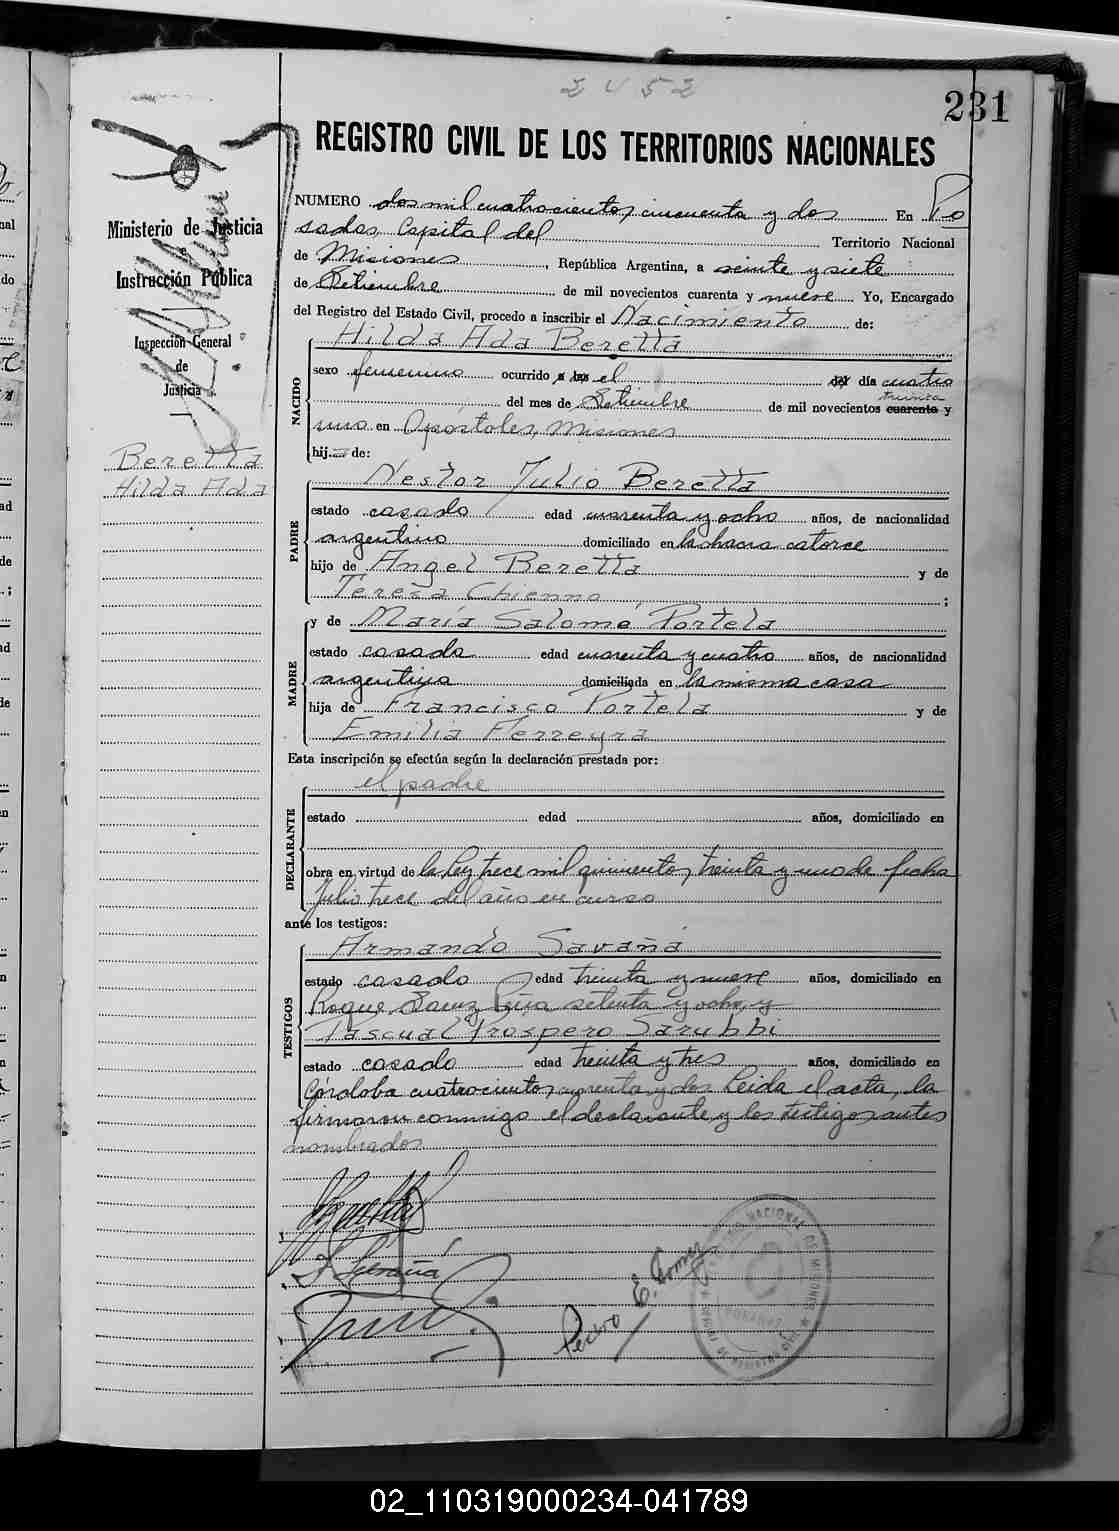 2452
231
REGISTRO CIVIL DE LOS TERRITORIOS NACIONALES
Ministerio de Justicia
e
Instrucción Pública
Inspección General
de
Justicia
Beretta
Hilda Ada
NUMERO dos mil cuatrocientos cincuenta y dos En Po
sadas, Capital del Territorio Nacional
de Misiones, República Argentina, a veinte y siete
de Setiembre de mil novecientos cuarenta y nueve Yo, Encargado
del Registro del Estado Civil, procedo a inscribir el Nacimiento de:
Hilda Ada Beretta
NACIDO
sexo femenino ocurrido a las el del día cuatro
treinta
del mes de Setiembre de mil novecientos cuarenta y
uno en Apóstoles, Misiones
hij... de:
Nestor Julio Beretta
PADRE
estado casado edad cuarenta y ocho años, de nacionalidad
argentino domiciliado en la chacra catorce
hijo de Angel Beretta y de
Teresa Chienno;
y de María Salomé Portela
MADRE
estado casada edad cuarenta y cuatro años, de nacionalidad
argentina domiciliada en la misma casa
hija de Francisco Portela y de
Emilia Ferreyra
Esta inscripción se efectúa según la declaración prestada por:
el padre
DECLARANTE
estado edad años, domiciliado en
obra en virtud de la Ley trece mil quinientos, treinta y uno de fecha
Julio trece del año en curso
ante los testigos:
Armando Savaña
TESTIGOS
estado casado edad treinta y nueve años, domiciliado en
Roque Saenz Peña setenta y ocho, y
Pascual Prospero Sarubbi
estado casado edad treinta y tres años, domiciliado en
Córdoba cuatrocientos cuarenta y dos Leida el acta, la
firmaron conmigo el declarante y los testigos antes
nombrados
Pedro E. Gomez
02_110319000234-041789